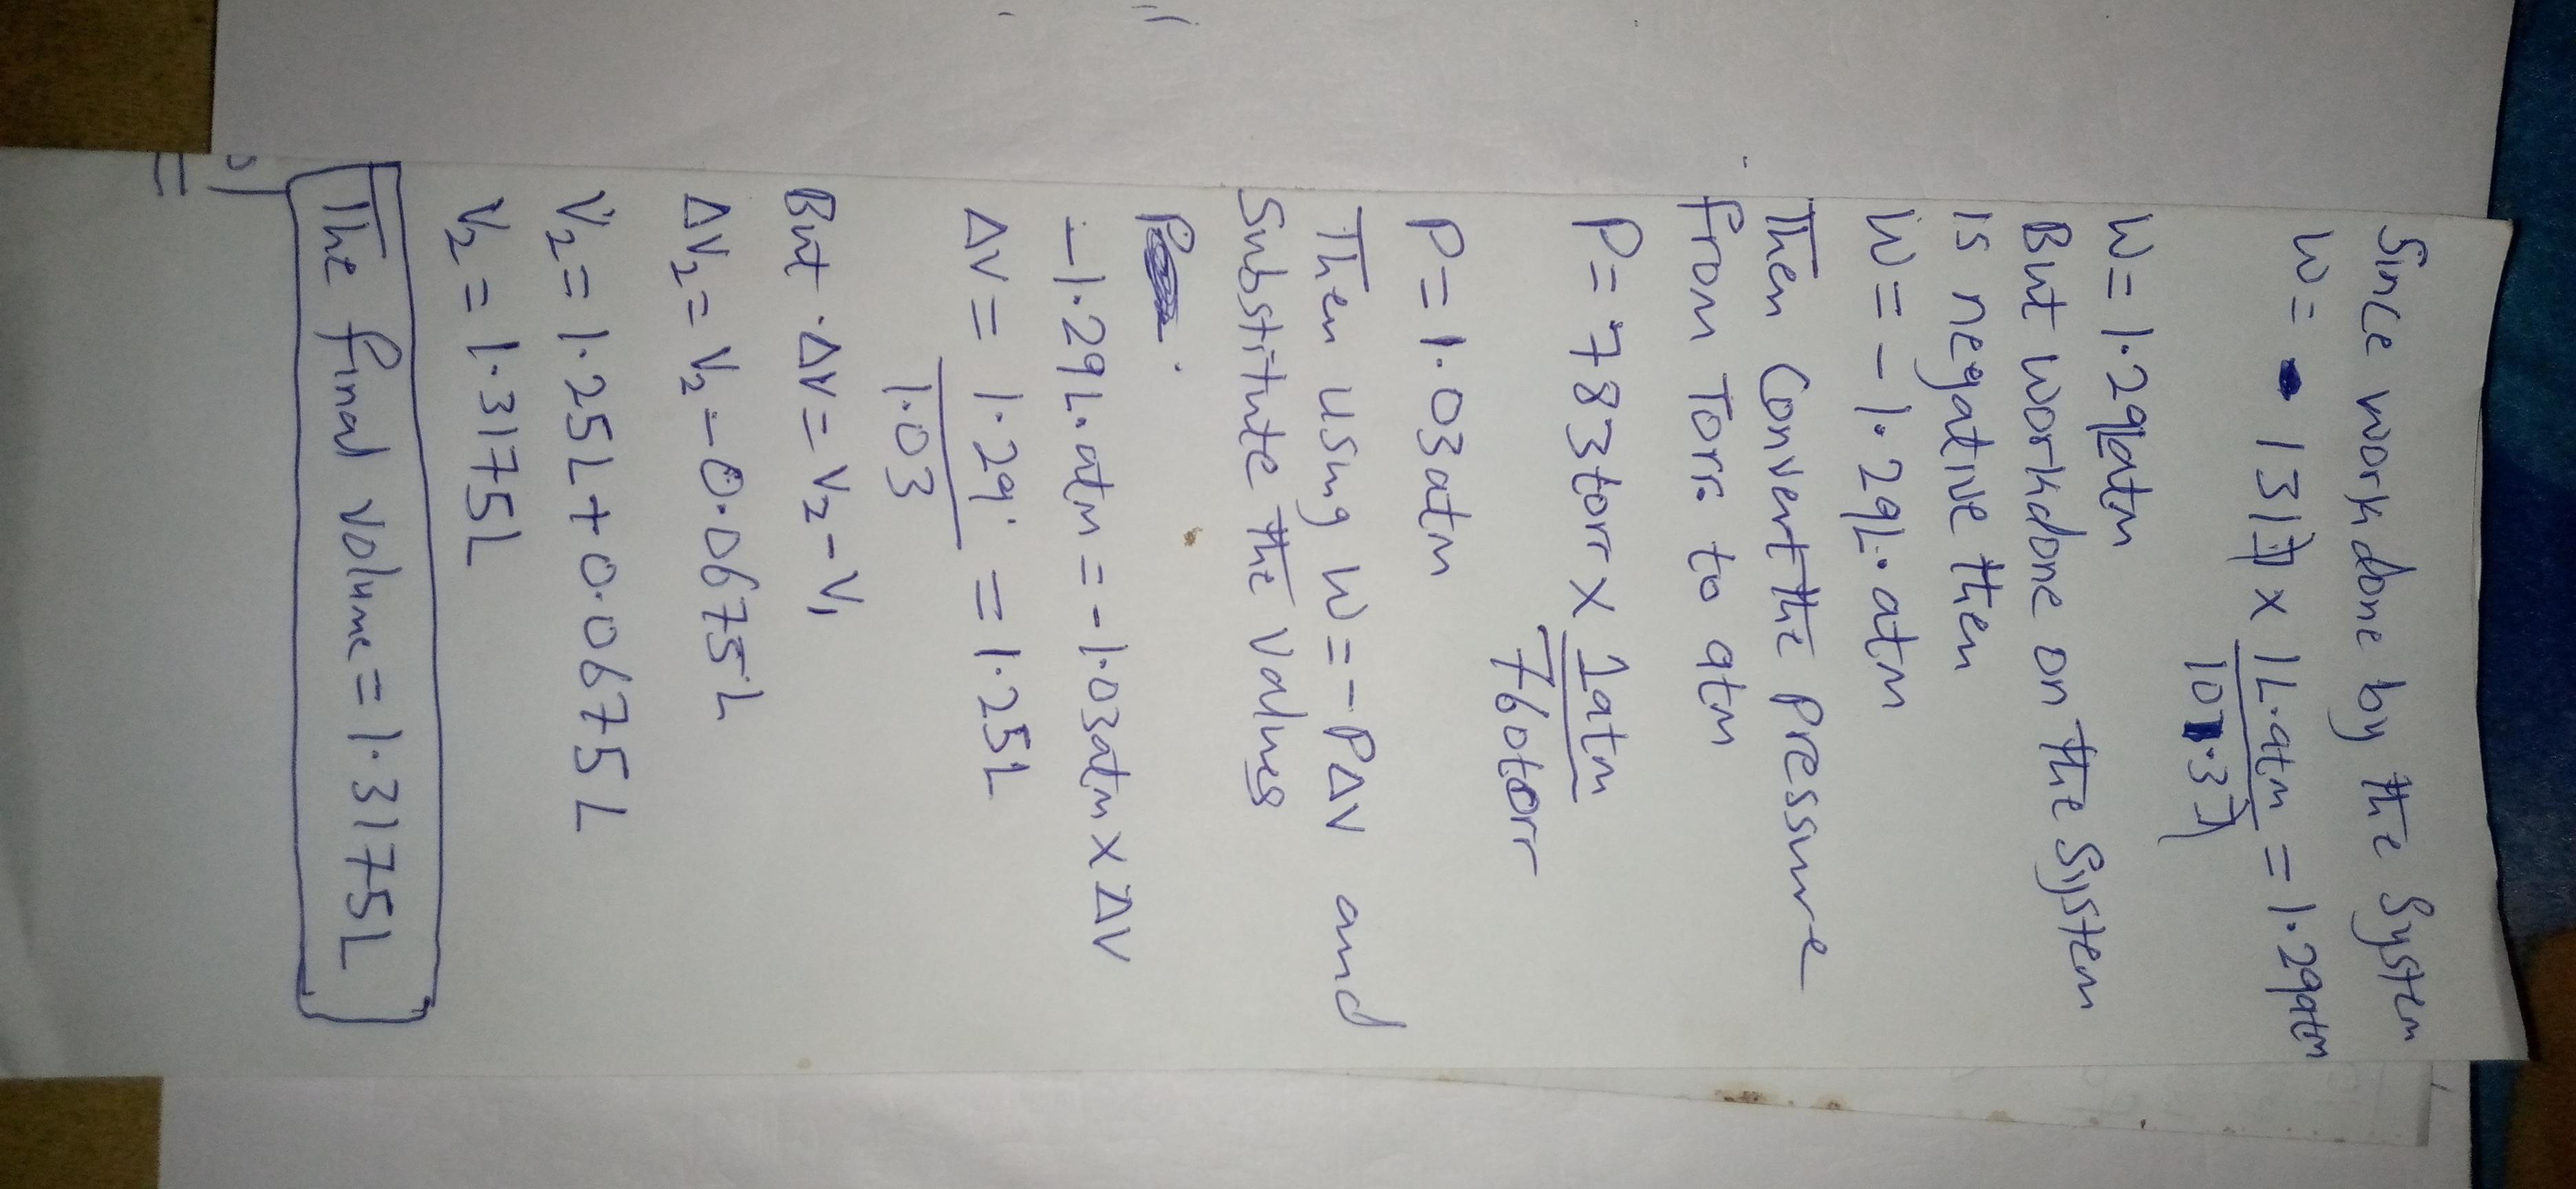 Since work done by the System
W = 131J × 1L.atm / 101.3J = 1.29atm
W = 1.29latm
But workdone on the System
is negative then
W = -1.29L.atm
Then Convert the Pressure
from Torr to atm
P = 783torr × 1atm / 760torr
P = 1.03atm
Then using W = -PΔV and
Substitute the values
-1.29L.atm = -1.03atm × ΔV
ΔV = 1.29 / 1.03 = 1.25L
But ΔV = V₂ - V₁
ΔV₂ = V₂ - 0.0675L
V₂ = 1.25L + 0.0675L
V₂ = 1.3175L
The final volume = 1.3175L